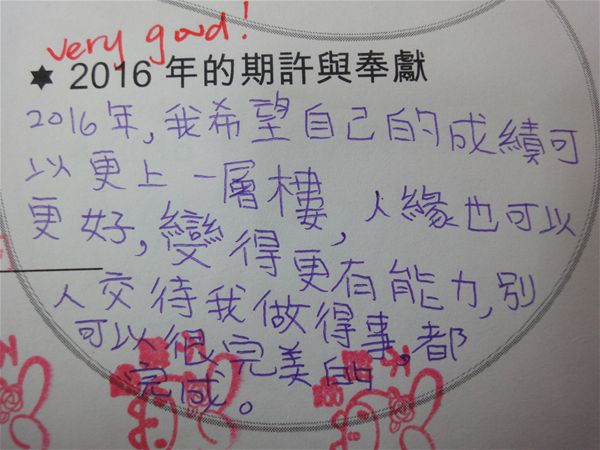 very good!
✶ 2016 年的期許與奉獻
2016年,我希望自己的成績可
以更上一層樓,人緣也可以
更好,變得更有能力,別
人交待我做得事,都
可以很完美的
完成。